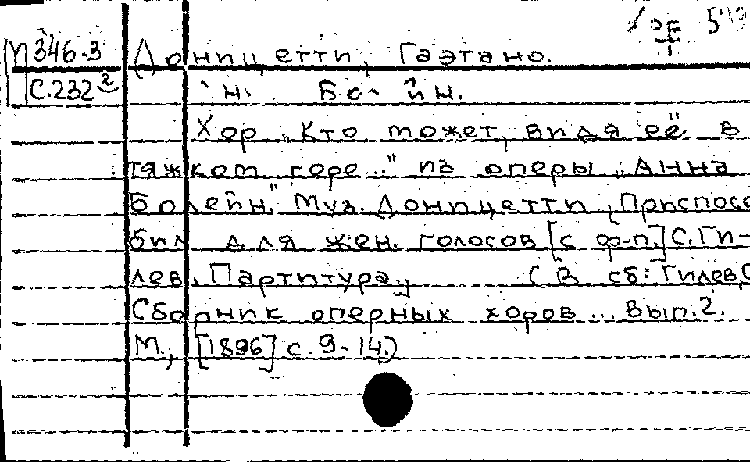 М346-3 Доницетти, Гаэтано.
С.232²
Хор „Кто может, видя её в
тяжком горе..." из оперы „Анна
Болейн." Муз. Доницетти, Приспосо
бил для жен. голосов [с ф-п.] С. Ги-
лев. Партитура, (В сб: Гилев, С
Сборник оперных хоров... Вып. 2.
М., [1896] с. 9-14.)